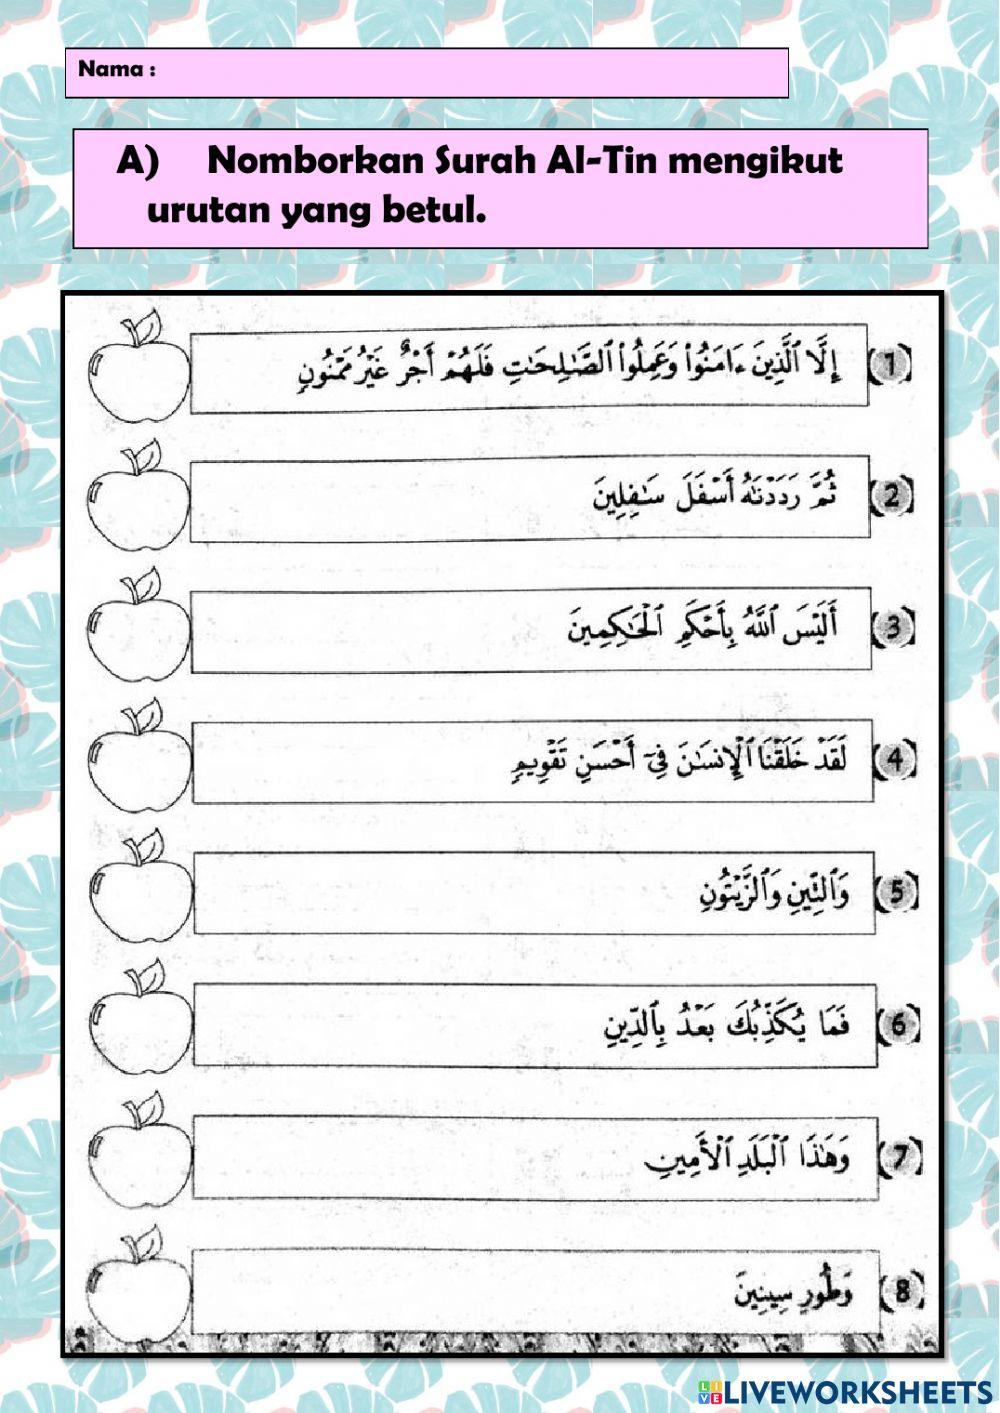 Nama :
A) Nomborkan Surah Al-Tin mengikut
urutan yang betul.
(1) إِلَّا ٱلَّذِينَ ءَامَنُوا۟ وَعَمِلُوا۟ ٱلصَّـٰلِحَـٰتِ فَلَهُمْ أَجْرٌ غَيْرُ مَمْنُونٍ
(2) ثُمَّ رَدَدْنَـٰهُ أَسْفَلَ سَـٰفِلِينَ
(3) أَلَيْسَ ٱللَّهُ بِأَحْكَمِ ٱلْحَـٰكِمِينَ
(4) لَقَدْ خَلَقْنَا ٱلْإِنسَـٰنَ فِىٓ أَحْسَنِ تَقْوِيمٍ
(5) وَٱلتِّينِ وَٱلزَّيْتُونِ
(6) فَمَا يُكَذِّبُكَ بَعْدُ بِٱلدِّينِ
(7) وَهَـٰذَا ٱلْبَلَدِ ٱلْأَمِينِ
(8) وَطُورِ سِينِينَ
LIVE LIVEWORKSHEETS